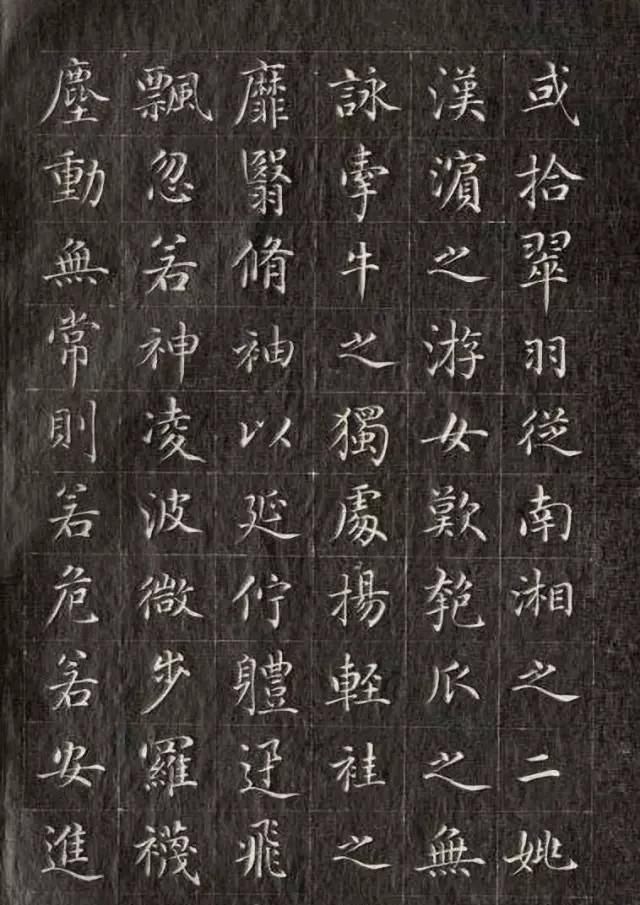 或拾翠羽從南湘之二姚
漢濱之游女歎匏瓜之無
詠牽牛之獨處揚輕袿之
靡翳脩袖以延佇體迅飛
飄忽若神凌波微步羅襪
塵動無常則若危若安進